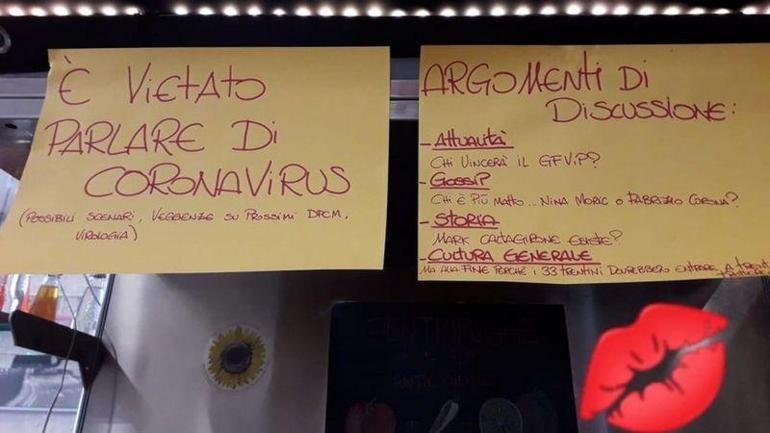 È VIETATO
PARLARE DI
CORONAVIRUS
(POSSIBILI SCENARI, VEGGENZE SU PROSSIMI DPCM,
VIROLOGIA)
ARGOMENTI DI
DISCUSSIONE:
- ATTUALITÀ
CHI VINCERÀ IL GFVIP?
- GOSSIP
CHI È PIÙ MATTO... NINA MORIC O FABRIZIO CORONA?
- STORIA
MARK CALTAGIRONE ESISTE?
- CULTURA GENERALE
MA ALLA FINE PERCHÈ I 33 TRENTINI DOVREBBERO ENTRARE A TRENTO
CENTRIFUGHE